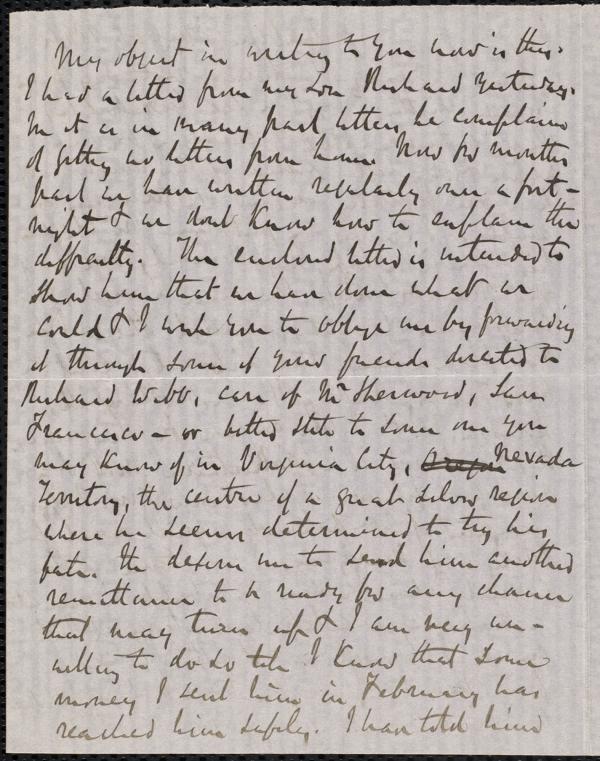 My object in writing to you now is this.
I had a letter from my son Richard yesterday.
In it as in many past letters, he complains
of getting no letters from home. Now for months
past we have written regularly once a fort-
night & we dont know how to explain the
difficulty. The enclosed letter is intended to
show him that we have done what we
could & I wish you to oblige me by forwarding
it through some of your friends directed to
Richard Webb, care of Mr Sherwood, San
Francisco - or better still to some one you
may know of in Virginia City, Oregon Nevada
Territory, the centre of a great silver region
where he seems determined to try his
fate. He desires me to send him another
remittance to be ready for any chance
that may turn up & I am very un-
willing to do so till I know that some
money I sent him in February has
reached him safely. I have told him